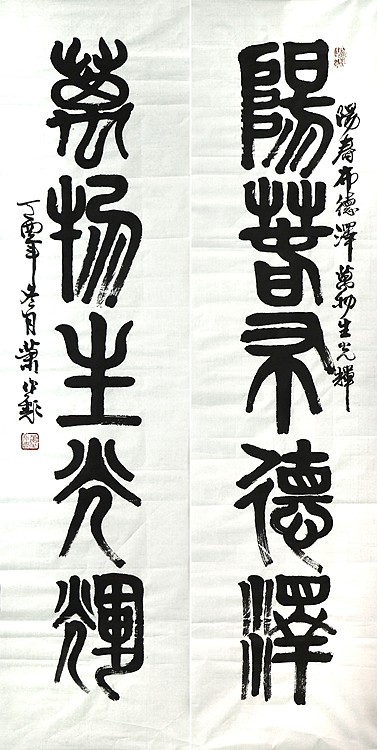 陽春布德澤
陽春布德澤萬物生光輝
萬物生光輝
丁酉年冬月蕭